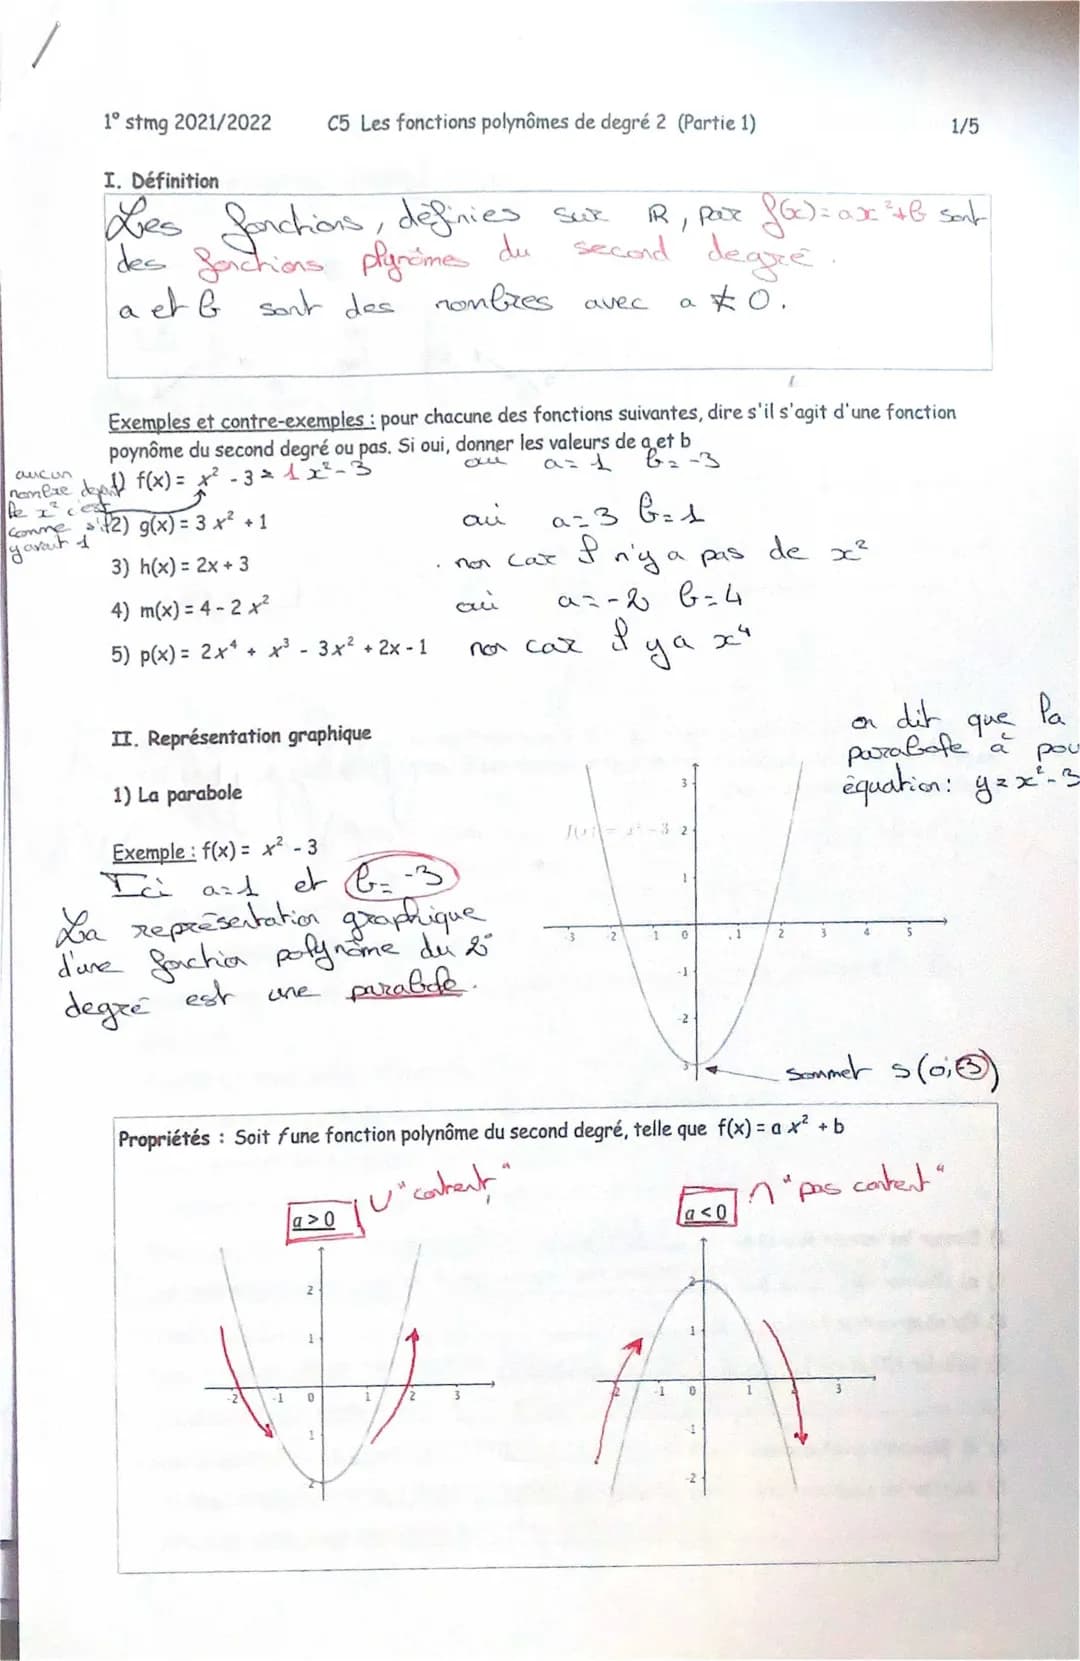 1° stmg 2021/2022 C5 Les fonctions polynômes de degré 2 (Partie 1) 1/5
I. Définition
Les fonctions, définies sur ℝ, par f(x) = ax²+b sont
des fonctions plynômes du second degré.
a et b sont des nombres avec a ≠ 0.
Exemples et contre-exemples : pour chacune des fonctions suivantes, dire s'il s'agit d'une fonction
poynôme du second degré ou pas. Si oui, donner les valeurs de a et b
aucun
nombre devant
le x² c'est
comme s'il
y avait 1
1) f(x) = x² - 3 = 1x² - 3 oui a=1 b=-3
2) g(x) = 3 x² + 1 oui a=3 b=1
3) h(x) = 2x + 3 non car il n'y a pas de x²
4) m(x) = 4 - 2 x² oui a=-2 b=4
5) p(x) = 2x⁴ + x³ - 3x² + 2x - 1 non car il y a x⁴
II. Représentation graphique
on dit que la
parabole à pour
équation: y = x² - 3
1) La parabole
Exemple : f(x) = x² - 3
Ici a=1 et b=-3
La représentation graphique
d'une fonction polynôme du 2°
degré est une parabole.
f(x) = x² - 3
3
2
1
-3 -2 -1 0 1 2 3 4 5
-1
-2
-3
Sommet S(0;-3)
Propriétés : Soit f une fonction polynôme du second degré, telle que f(x) = a x² + b
a > 0 ∪ "content"
a < 0 ∩ "pas content"
2
1
-2 -1 0 1 2 3
1
2
2
1
-2 -1 0 1 2 3
-1
-2